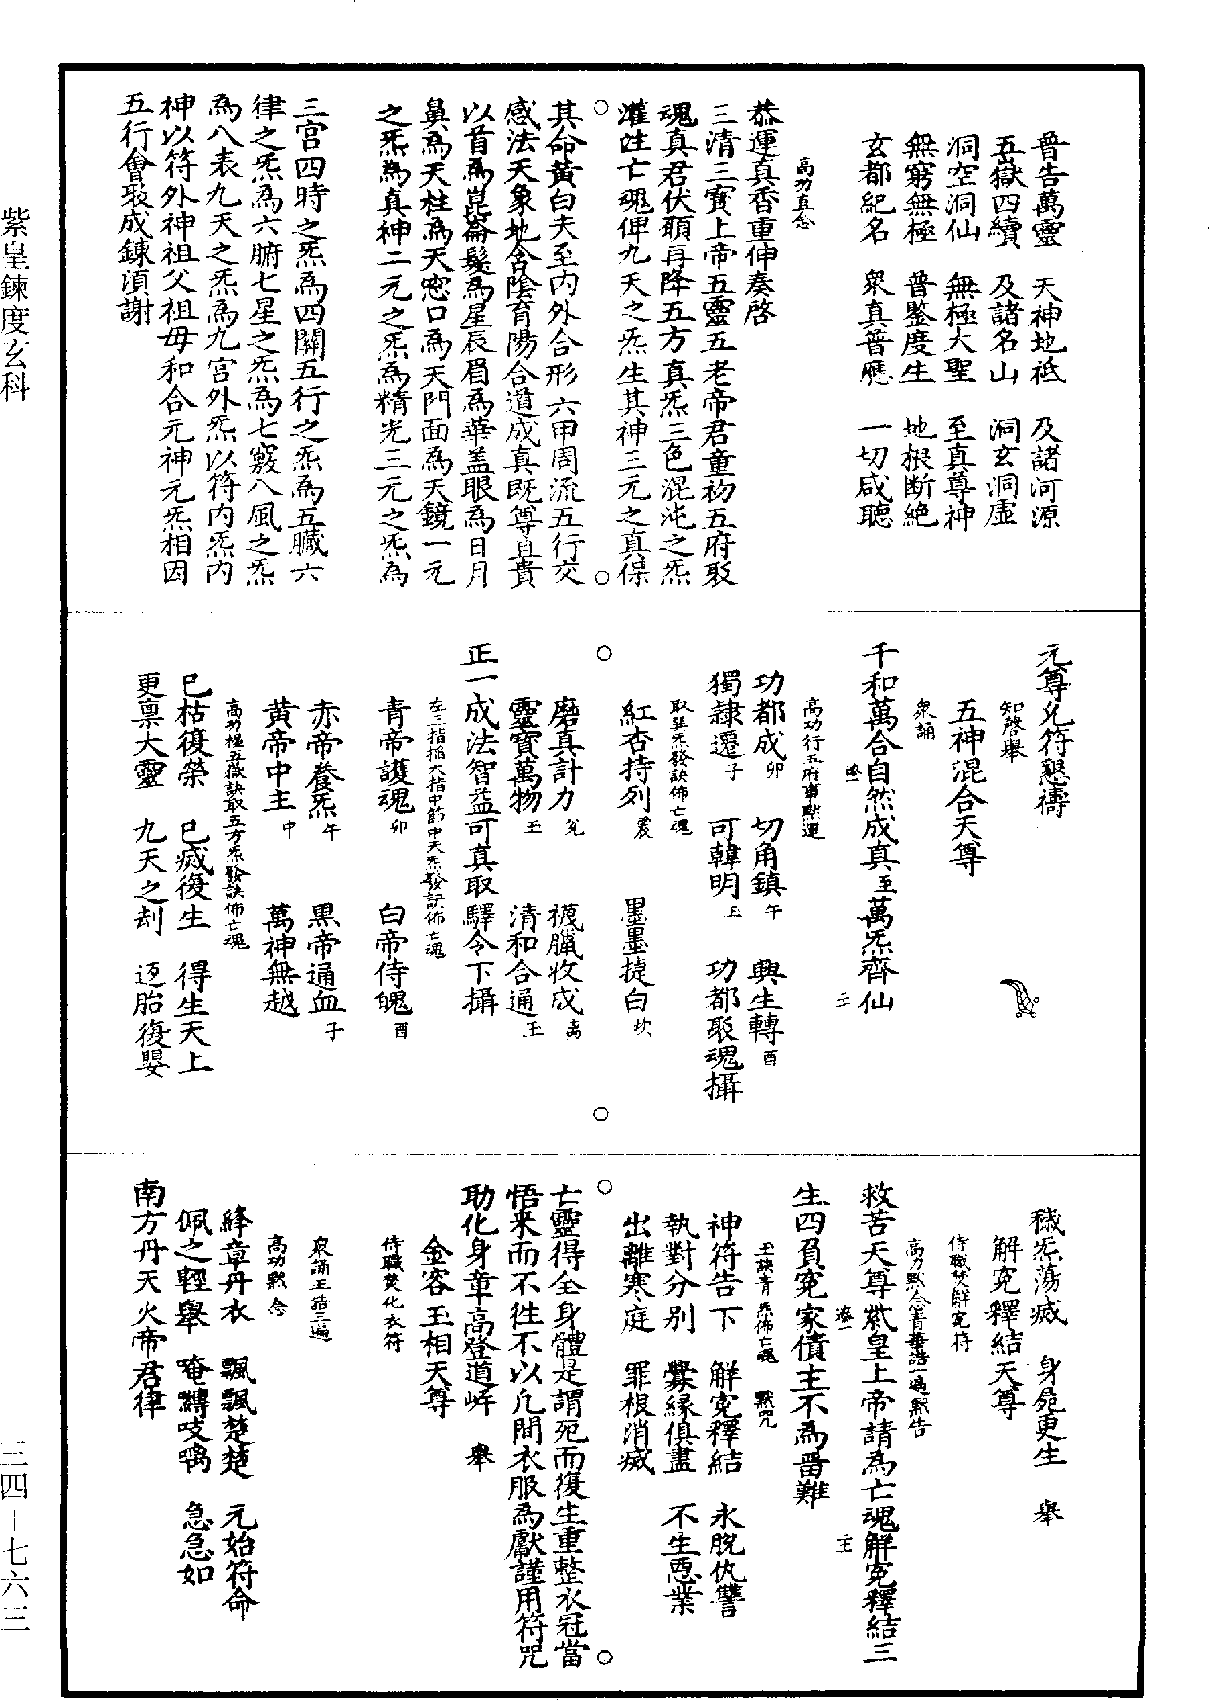 普告萬靈　天神地祇　及諸河源
五嶽四續　及諸名山　洞玄洞虛
洞空洞仙　無極大聖　至真尊神
無窮無極　普鑒度生　地根断絶
玄都紀名　眾真普應　一切咸聽
高功真念
恭運真香重伸奏啓
三清三寶上帝五靈五老帝君童初五府馭
魂真君伏願再降五方真炁三色混沌之炁
灌注亡魂俾九天之炁生其神三元之真保
其命黃白夫至内外合形六甲周流五行交
感法天象地含陰育陽合道成真既尊且貴
以首為崑崙髮為星辰眉為華盖眼為日月
鼻為天柱為天窓口為天門面為天鏡一元
之炁為真神二元之炁為精光三元之炁為
三宮四時之炁為四關五行之炁為五臟六
律之炁為六腑七星之炁為七竅八風之炁
為八表九天之炁為九宮外炁以符内炁内
神以符外神祖父祖母和合元神元炁相因
五行會聚成鍊湏謝
元尊允符懇禱
知磬舉
五神混合天尊
眾誦
千和萬合自然成真至萬炁齊仙
高功行五府事默運
功都成卯　切角鎮午　興生轉酉
獨隷遷子　可韓明　功都馭魂攝
取五炁發訣佈亡魂
紅杏持列震　墨墨捷白坎
磨真計力兌　襪臘收成离
靈寶萬物　清和合通
正一成法智益可真取驛令下攝
左三指搯大指中節中天炁發訣佈亡魂
青帝護魂卯　白帝侍魄酉
赤帝養炁午　黒帝通血子
黃帝中主中　萬神無越
高功握五嶽訣取五方炁發訣佈亡魂
已枯復榮　已滅復生　得生天上
更禀大靈　九天之刦　迈胎復嬰
穢炁蕩滅　身飛更生　舉
解冤釋結天尊
侍職焚解冤符
高功默念青華誥一遍默告
救苦天尊紫皇上帝請為亡魂解冤釋結三
生四負冤家債主不為畱難
玉訣青炁佈亡魂　默咒
神符告下　解冤釋結　永脫仇讐
執對分别　釁緣俱盡　不生惡業
出離寒庭　罪根消滅
亡靈得全身體是謂死而復生重整衣冠當
悟来而不徃不以凡間衣服為獻謹用符咒
助化身章高登道岸　舉
金容玉相天尊
侍職焚化衣符
眾誦玉章三遍
高功默念
絳章丹衣　飄飄楚楚　元始符命
佩之輕舉　唵　急急如
南方丹天火帝君律
紫皇鍊度玄科
三四—七六三